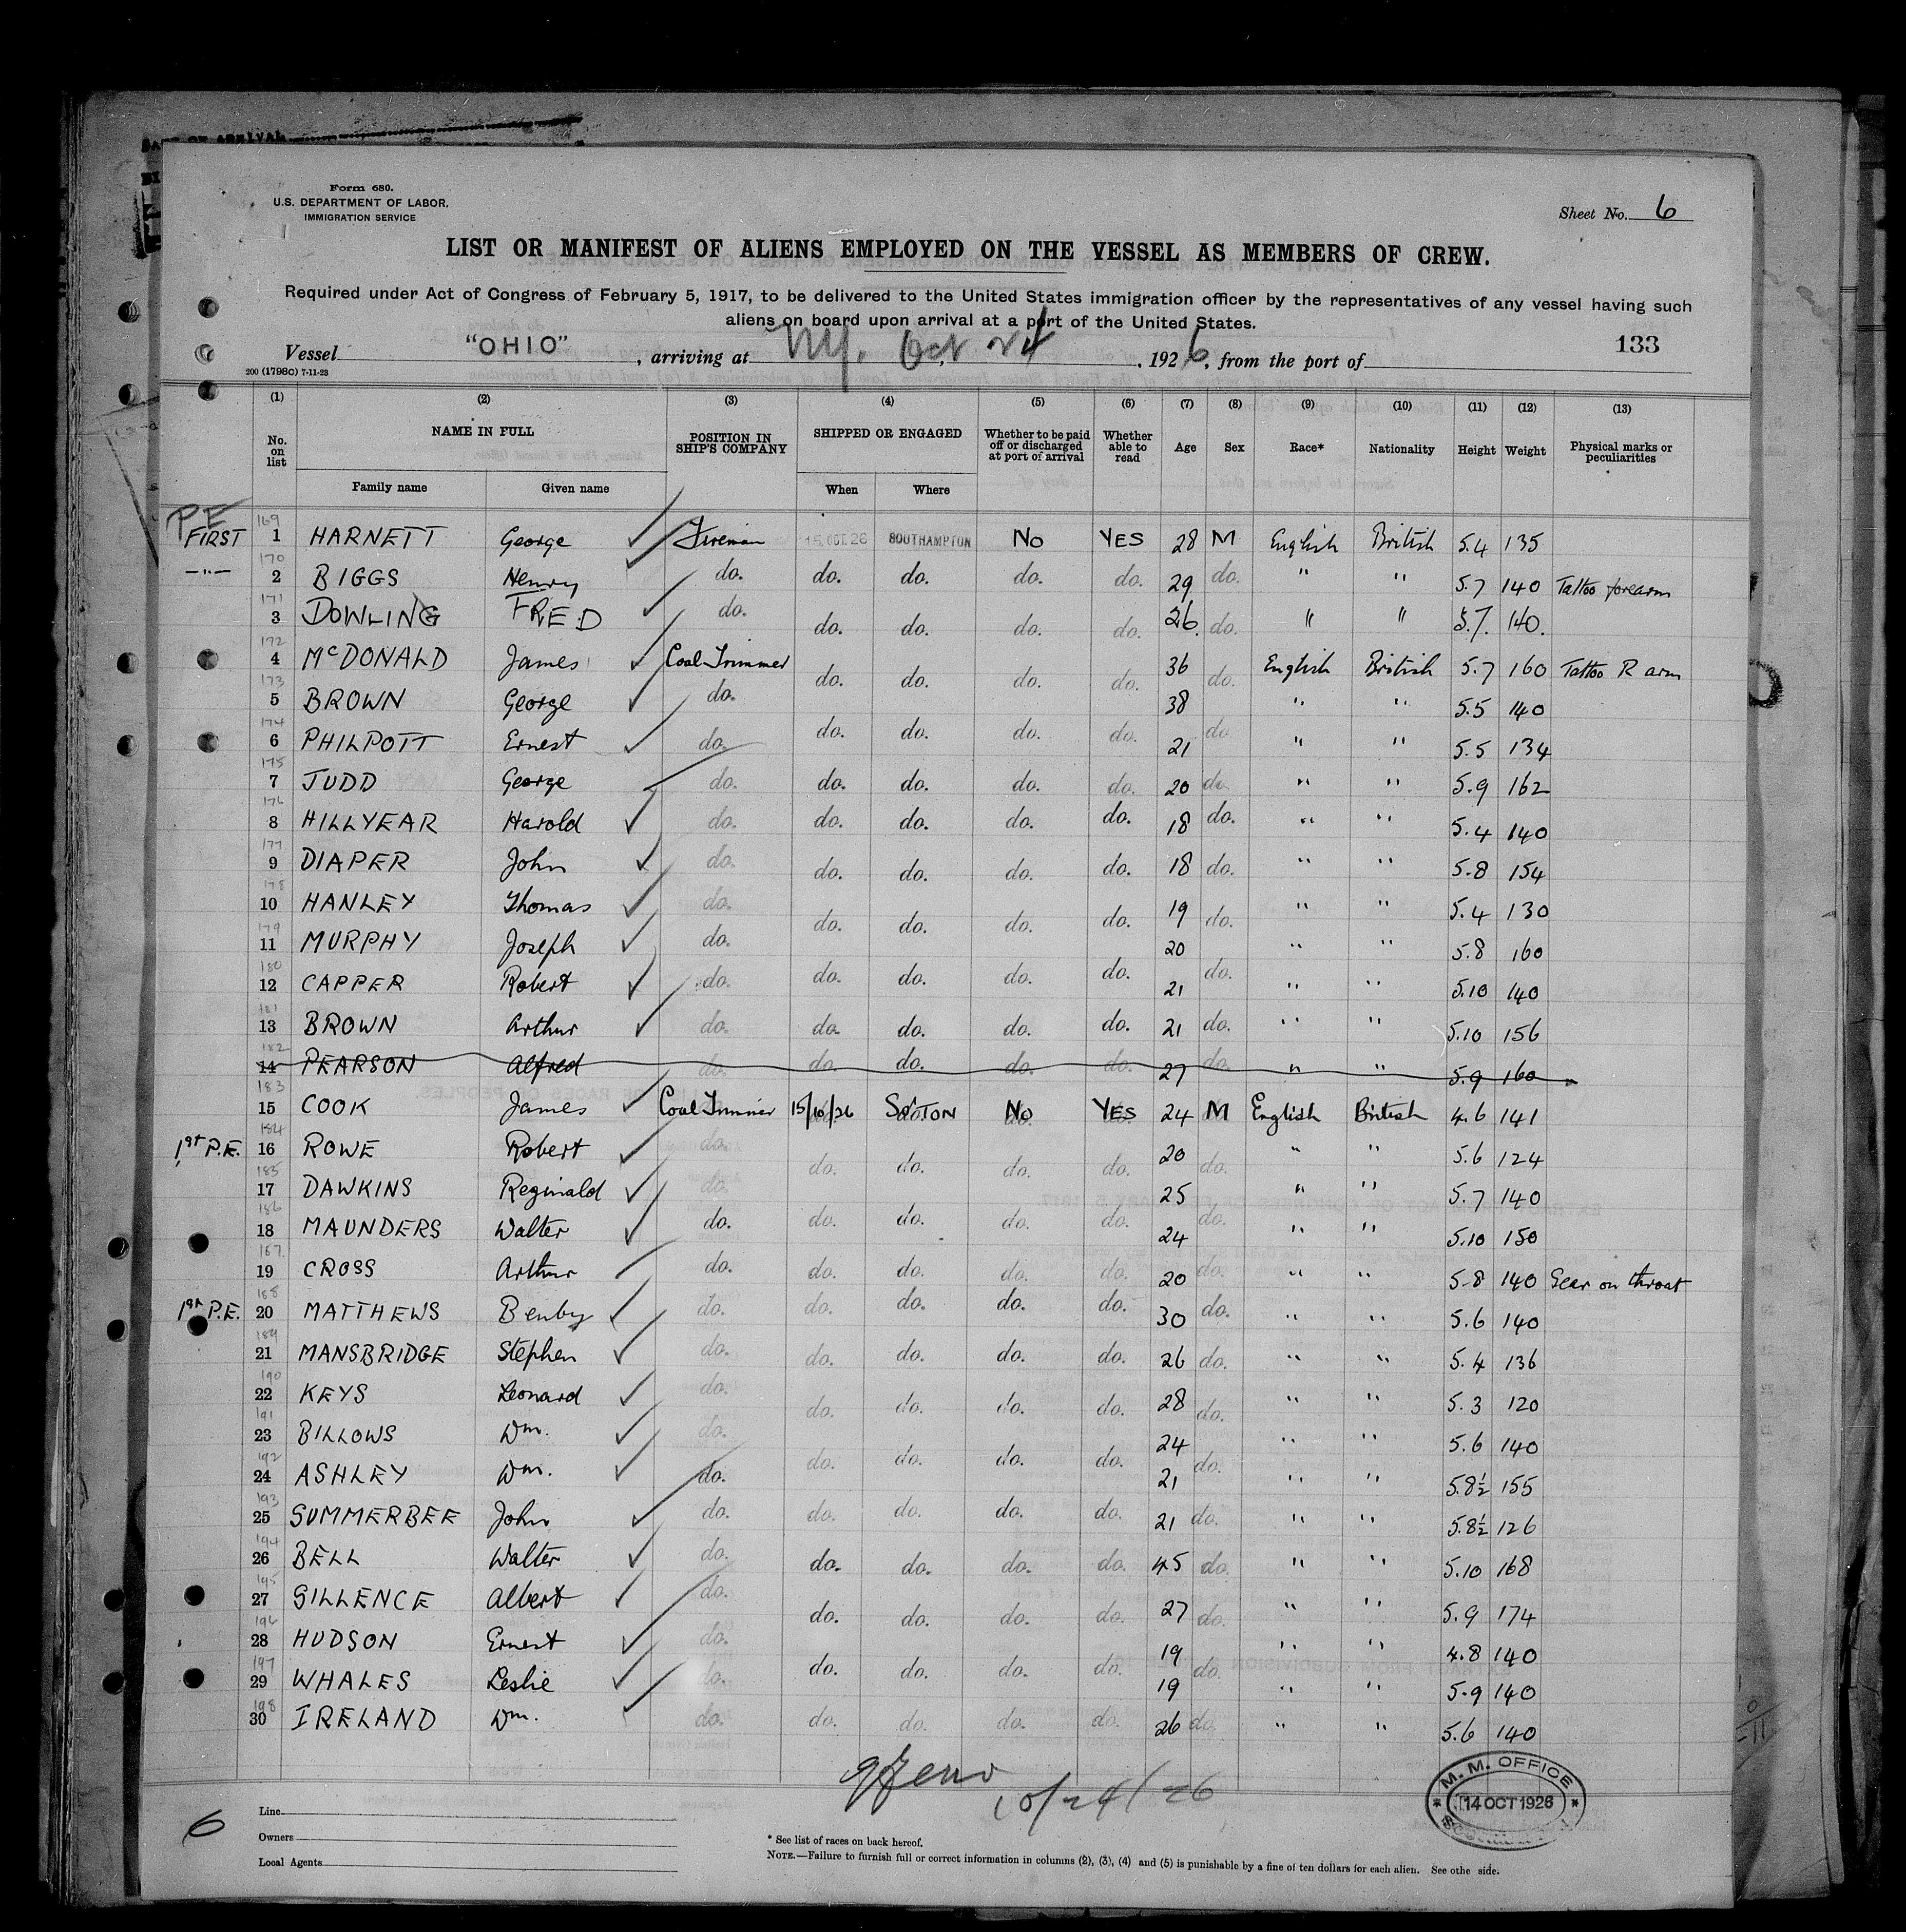 Form 680.
U.S. DEPARTMENT OF LABOR.
IMMIGRATION SERVICE
Sheet No. 6
LIST OR MANIFEST OF ALIENS EMPLOYED ON THE VESSEL AS MEMBERS OF CREW.
Required under Act of Congress of February 5, 1917, to be delivered to the United States immigration officer by the representatives of any vessel having such
aliens on board upon arrival at a port of the United States.
133
Vessel "OHIO", arriving at N.Y. Oct 24, 1926, from the port of
200 (1798c) 7-11-23
(1) (2) (3) (4) (5) (6) (7) (8) (9) (10) (11) (12) (13)
No. on list NAME IN FULL POSITION IN SHIP'S COMPANY SHIPPED OR ENGAGED Whether to be paid off or discharged at port of arrival Whether able to read Age Sex Race* Nationality Height Weight Physical marks or peculiarities
Family name Given name When Where
P.E
FIRST 169 1 HARNETT George Fireman 15 OCT. 26 SOUTHAMPTON NO YES 28 M English British 5.4 135
—"— 170 2 BIGGS Henry do. do. do. do. do. 29 do. " " 5.7 140 Tattoo forearm
171 3 DOWLING FRED do. do. do. do. do. 26. do. " " 5.7. 140.
172 4 McDONALD James Coal Trimmer do. do. do. do. 36 do. English British 5.7 160 Tattoo R arm
173 5 BROWN George do. 38 " " 5.5 140
174 6 PHILPOTT Ernest do. do. do. do. do. 21 do. " " 5.5 134
175 7 JUDD George do. do. do. do. do. 20 do. " " 5.9 162
176 8 HILLYEAR Harold do. do. do. do. do. 18 do. " " 5.4 140
177 9 DIAPER John do. do. do. do. do. 18 do. " " 5.8 154
178 10 HANLEY Thomas do. do. do. do. do. 19 do. " " 5.4 130
179 11 MURPHY Joseph do. 20 " " 5.8 160
180 12 CAPPER Robert do. do. do. do. do. 21 do. " " 5.10 140
181 13 BROWN Arthur do. do. do. do. do. 21 do. " " 5.10 156
182 14 PEARSON Alfred do. do. do. do. do. 27 do. " " 5.9 160
183 15 COOK James Coal Trimmer 15/10/26 So'TON NO YES 24 M English British 4.6 141
1st P.E. 184 16 ROWE Robert do. do. do. do. do. 20 do. " " 5.6 124
185 17 DAWKINS Reginald do. 25 " " 5.7 140
186 18 MAUNDERS Walter do. do. do. do. do. 24 do. " " 5.10 150
187 19 CROSS Arthur do. do. do. do. do. 20 do. " " 5.8 140 Scar on throat
1st P.E. 188 20 MATTHEWS Benby do. do. do. do. do. 30 do. " " 5.6 140
189 21 MANSBRIDGE Stephen do. do. do. do. do. 26 do. " " 5.4 136
190 22 KEYS Leonard do. do. do. do. do. 28 do. " " 5.3 120
191 23 BILLOWS Wm. do. 24 " " 5.6 140
192 24 ASHLEY Wm. do. do. do. do. do. 21 do. " " 5.8½ 155
193 25 SUMMERBEE John do. do. do. do. do. 21 do. " " 5.8½ 126
194 26 BELL Walter do. do. do. do. do. 45 do. " " 5.10 168
195 27 GILLENCE Albert do. do. do. do. do. 27 do. " " 5.9 174
196 28 HUDSON Ernest do. 19 " " 4.8 140
197 29 WHALES Leslie do. do. do. do. do. 19 do. " " 5.9 140
198 30 IRELAND Wm. do. do. do. do. do. 26 do. " " 5.6 140
10/24/26
M. M. OFFICE
14 OCT 1926
6
Line
Owners
Local Agents
* See list of races on back hereof.
NOTE.—Failure to furnish full or correct information in columns (2), (3), (4) and (5) is punishable by a fine of ten dollars for each alien. See othe side.